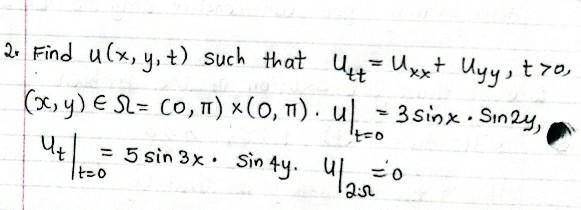 2. Find u(x, y, t) such that u_tt = u_xx + u_yy, t>0,
(x, y) ∈ Ω = (0, π) × (0, π). u|_t=0 = 3 sinx · Sin2y,
u_t|_t=0 = 5 sin 3x · Sin 4y. u|_∂Ω = 0